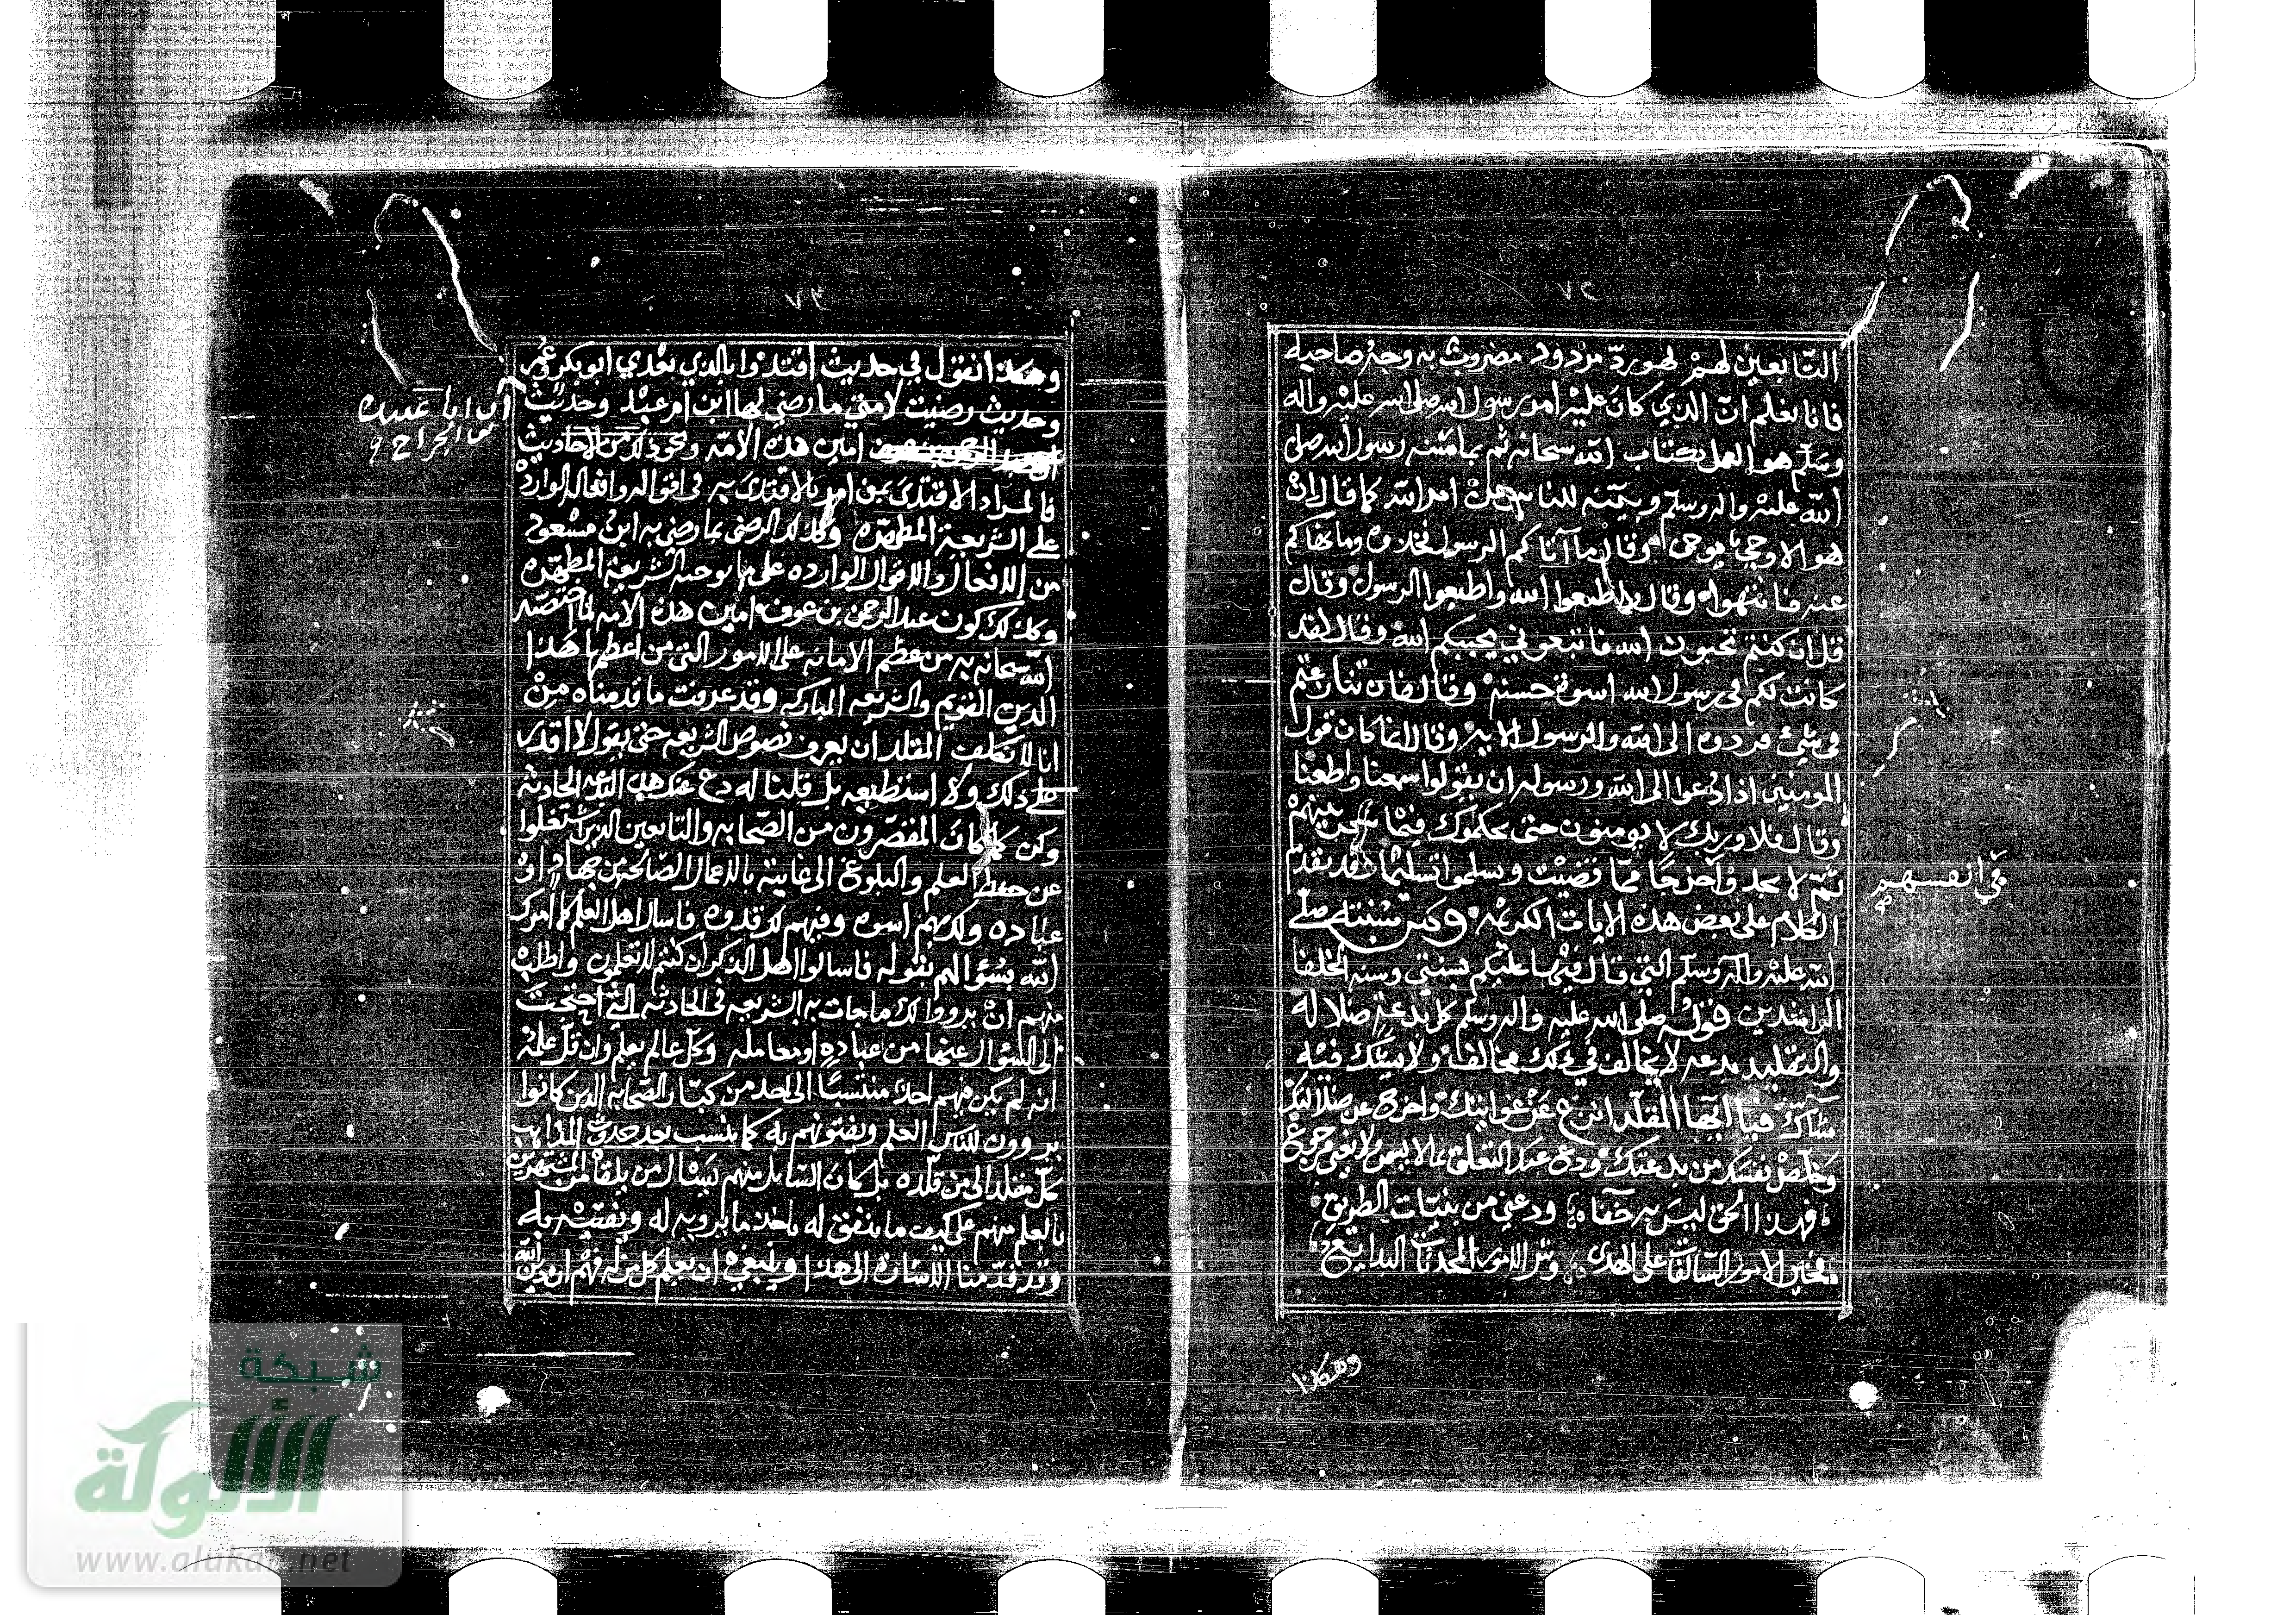 ٧٢
التابعين لهم لهو رد مردود مضروب به وجه صاحبه
فانا نعلم ان الذي كان عليه امر رسول الله صلى الله عليه واله
وسلم هو العمل بكتاب الله سبحانه ثم بما سنه رسول الله صلى
الله عليه واله وسلم وبينه للناس عن امر الله كما قال ان
هو الا وحي يوحى وقال ما آتاكم الرسول فخذوه وما نهاكم
عنه فانتهوا وقال اطيعوا الله واطيعوا الرسول وقال
قل ان كنتم تحبون الله فاتبعوني يحببكم الله وقال لقد
كانت لكم في رسول الله اسوة حسنة وقال فان تنازعتم
في شيء فردوه الى الله والرسول الايه وقال انما كان قول
المومنين اذا دعوا الى الله ورسوله ان يقولوا سمعنا واطعنا
وقال فلا وربك لا يومنون حتى يحكموك فيما شجر بينهم
ثم لا يجدوا حرجا مما قضيت ويسلموا تسليما وقد تقدم
في انفسهم
الكلام على بعض هذه الايات الكريمه ومن سنته صلى
الله عليه واله وسلم التي قال فيها عليكم بسنتي وسنة الخلفا
الراشدين قوله صلى الله عليه واله وسلم كل بدعة ضلاله
والتقليد بدعه لا يخالف في ذلك مخالف ولا يشك فيه
شاك فيا ايها المقلد انزع عن غوايتك واخرج عن ضلالتك
وخلص نفسك من بدعتك ودع عنك التعلق بما لا يسمن ولا يغني من جوع
فهذا الحق ليس به خفاء ودعني من بنيات الطريق
فخير الامور السالفات على الهدى وشر الامور المحدثات البدايع
وهكذا
٧٣
وهكذا نقول في حديث اقتدوا بالذي بعدي ابو بكر وعمر
وحديث رضيت لامتي ما رضي لها ابن ام عبد وحديث
ان ابا عبيده
بن الجراح
امين هذه الامه ونحو ذلك من الاحاديث
فالمراد الاقتدى بمن امر بالاقتدى به في اقواله وافعاله الوارده
على الشريعة المطهره وكذلك الرضى بما رضي به ابن مسعود
من الافعال والاقوال الوارده على ما توجبه الشريعة المطهره
وكذلك كون عبد الرحمن بن عوف امين هذه الامه لما اختصه
الله سبحانه به من عظم الامانه على الامور التي من اعظمها هذا
الدين القويم والشريعه المباركه وقد عرفت ما قدمناه من
انا لا نكلف المقلد ان يعرف نصوص الشريعه حتى يقول لا اقدر
على ذلك ولا استطيعه بل قلنا له دع عنك هذه البدعه الحادثه
وكن كما كان المقصرون من الصحابه والتابعين الذين اشتغلوا
عن حفظ العلم والبلوغ الى غايته بالاعمال الصالحه من جهاد او
عباده ولك بهم اسوه وفيهم لك قدوه فاسال اهل العلم كما امرك
الله بسؤالهم بقوله فاسالوا اهل الذكر ان كنتم لا تعلمون واطلب
منهم ان يرووا لك ما جات به الشريعه في الحادثه التي احتجت
الى السؤال عنها من عباده او معامله وكل عالم يعلم وان قل علمه
انه لم يكن فيهم احد منتسبا الى احد من كبار الصحابه الذين كانوا
يروون للناس العلم ويفتونهم به كما ينتسب بعد حدوث المذاهب
كل مقلد الى من قلده بل كان السايل منهم يسال من يلقا من المشتهرين
بالعلم منهم على كيف ما يتفق له ياخذ ما يرويه له ويفتيه به
وقد قدمنا الاشاره الى هذا وينبغي ان يعلم كل من له فهم ان دين الله
شبكة
الألوكة
www.alukah.net